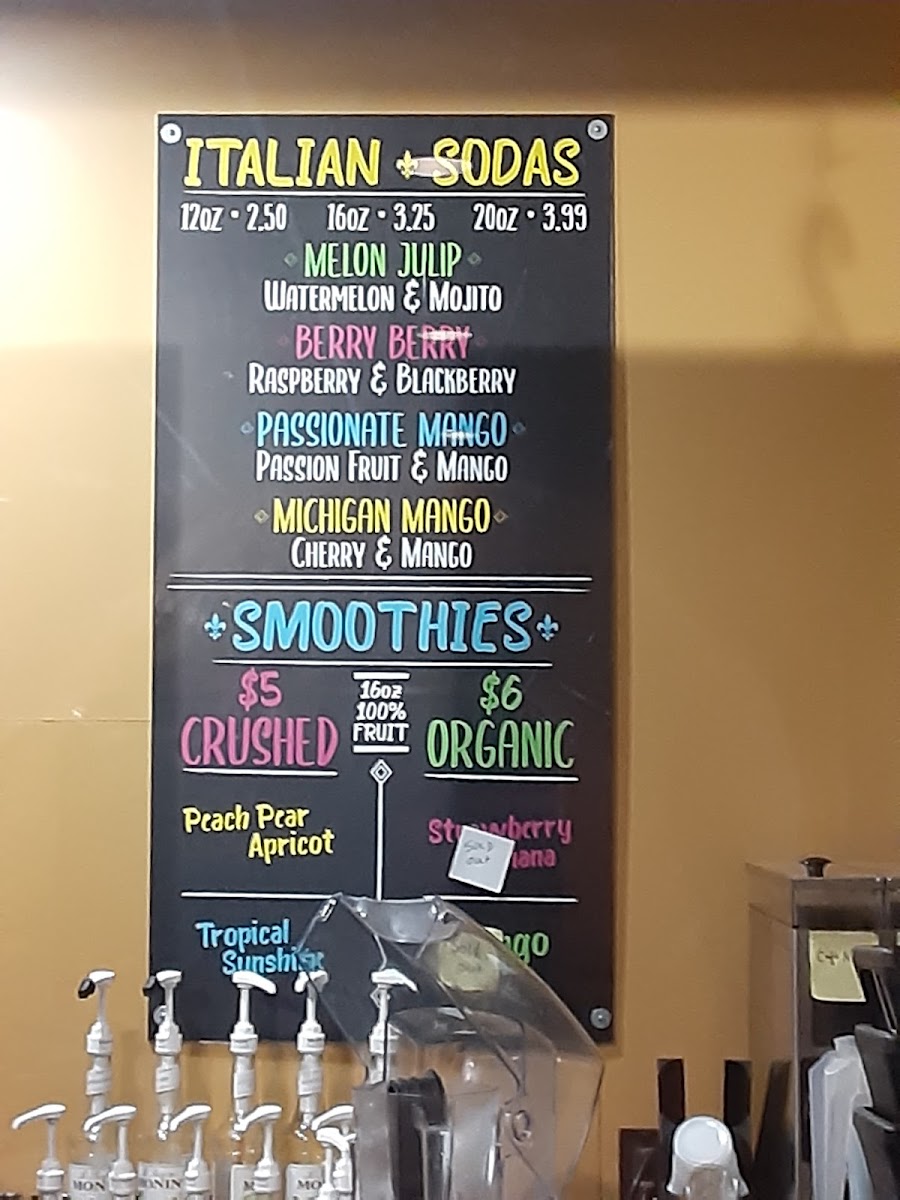 ITALIAN SODAS
12oz • 2.50 16oz • 3.25 20oz • 3.99
MELON JULIP
WATERMELON & MOJITO
BERRY BERRY
RASPBERRY & BLACKBERRY
PASSIONATE MANGO
PASSION FRUIT & MANGO
MICHIGAN MANGO
CHERRY & MANGO
SMOOTHIES
$5
CRUSHED
16oz
100%
FRUIT
$6
ORGANIC
Peach Pear
Apricot
Strawberry
SOLD
out
Tropical
Sunshine
Sold
out
MON
ONIN
MO